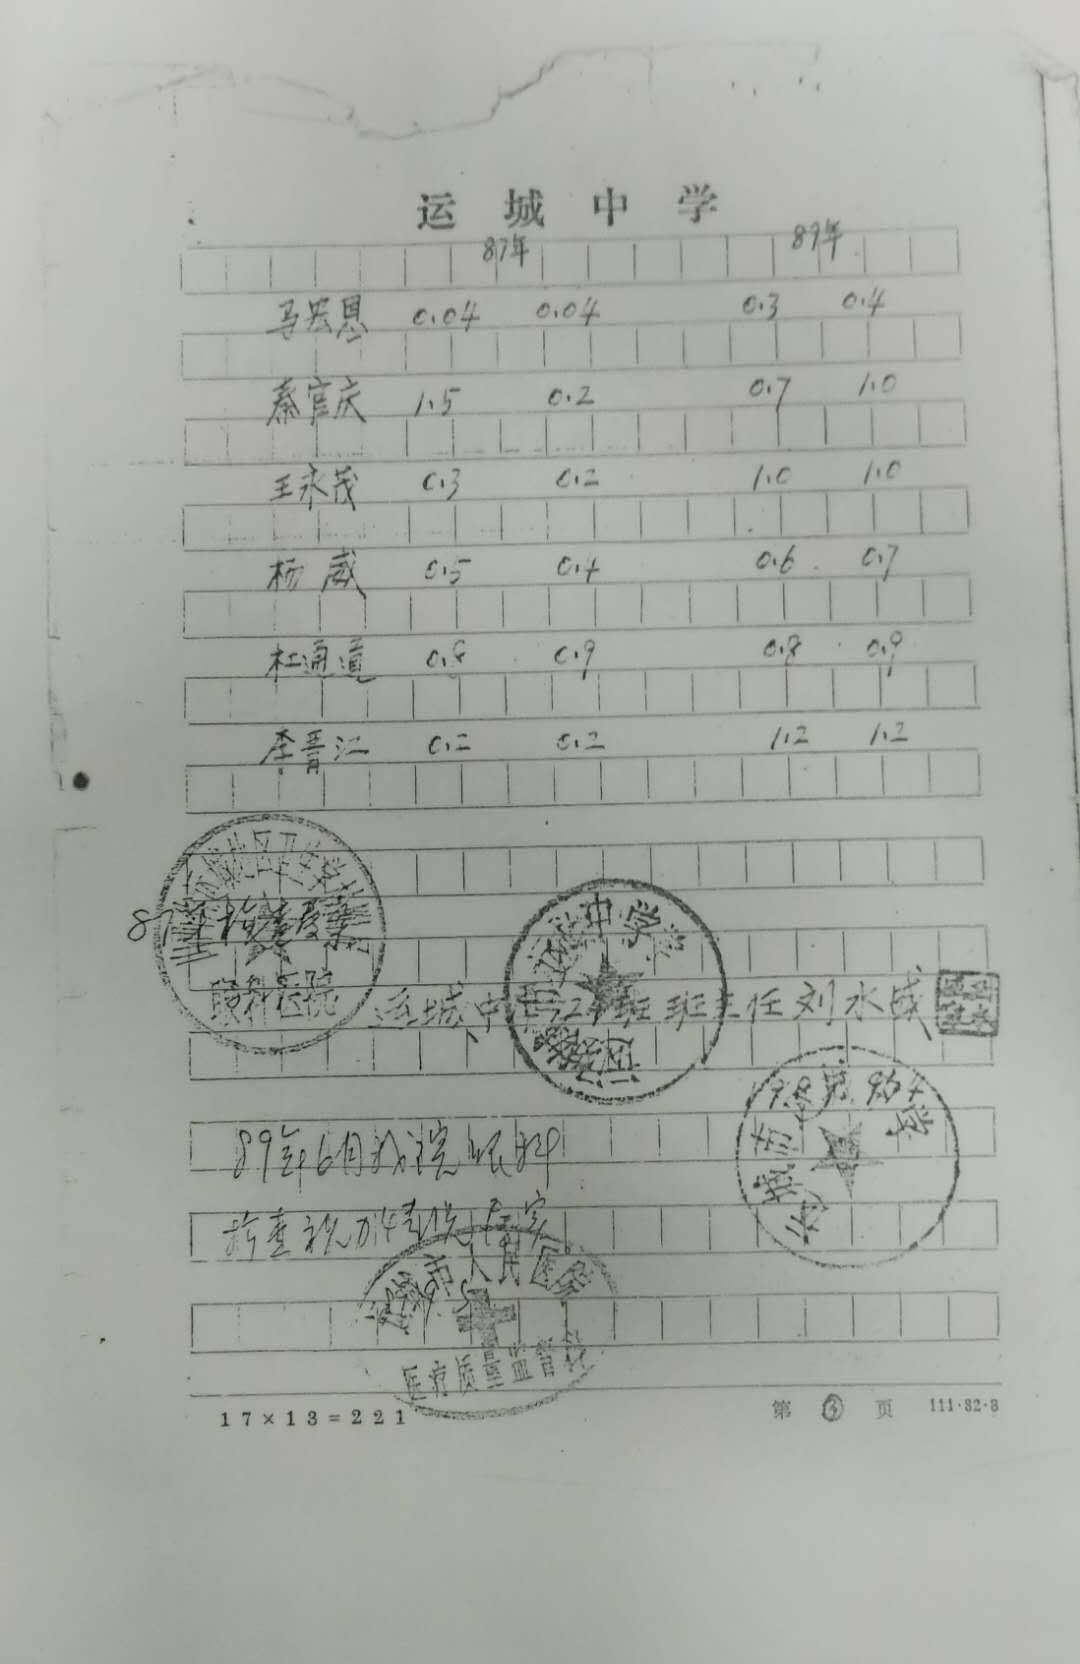 运城中学
87年 89年
马宏恩 0.04 0.04 0.3 0.4
秦官庆 1.5 0.2 0.7 1.0
王永茂 0.3 0.2 1.0 1.0
杨威 0.5 0.4 0.6 0.7
杜通道 0.8 0.9 0.8 0.9
李晋江 0.2 0.2 1.2 1.2
87年检查
眼科医院
中学
运城中 班班主任刘水成
89年6月我院眼科
检查视力情况属实
市人民医院
医疗质量监督
17×13=221 第 3 页 111·82·8